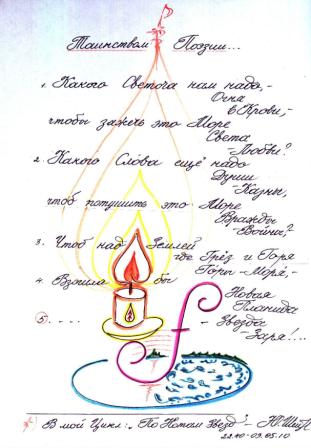 Таинством Поэзии...
1. Какого Светоча нам надо, -
Огня
в Крови, -
чтобы зажечь это Море
Света
- Любви?
2. Какого Слова ещё надо
Души
- Казны,
чтоб потушить это Море
Вражды
- Войны?
3. Чтоб над Землёй
где Грёз и Горя
Горы - Моря, -
4. Взошла бы
Новая
Планида
- Звезда
- Заря!...
5. ....
В мой Цикл: „По Нотам Звезд" -
22.40 - 09.05.10